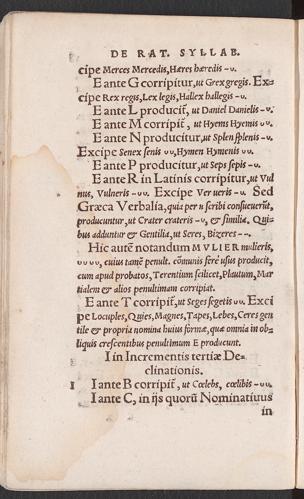 DE RAT. SYLLAB.
cipe Merces Mercedis, Hæres hæredis -ᴗ.
E ante G corripitur, ut Grex gregis. Ex-
cipe Rex regis, Lex legis, Hallex hallegis -ᴗ.
E ante L producit̃, ut Daniel Danielis -ᴗ.
E ante M corripit̃, ut Hyems Hyemis ᴗᴗ.
E ante N producitur, ut Splen splenis -ᴗ.
Excipe Senex senis ᴗᴗ, Hymen Hymenis ᴗᴗ
E ante P producitur, ut Seps sepis -ᴗ.
E ante R in Latinis corripitur, ut Vul
nus, Vulneris -ᴗᴗ. Excipe Ver ueris -ᴗ. Sed
Græca Verbalia, quia per η scribi consueuerũt,
producuntur, ut Crater crateris -ᴗ, & similia. Qui-
bus adduntur & Gentilia, ut Seres, Bizeres --.
Hic autẽ notandum MVLIER mulieris,
ᴗᴗᴗᴗ, cuius tamẽ penult. cõmunis ferè usus producit,
cum apud probatos, Terentium scilicet, Plautum, Mar
tialem & alios penultimam corripiat.
E ante T corripit̃, ut Seges segetis ᴗᴗ. Exci
pe Locuples, Quies, Magnes, Tapes, Lebes, Ceres gen
tile & propria nomina huius formæ, quæ omnia in ob-
liquis crescentibus penultimum E producunt.
I in Incrementis tertiæ De-
clinationis.
I I ante B corripit̃, ut Cœlebs, cœlibis -ᴗᴗ.
I ante C, in ijs quorũ Nominatiuus
in